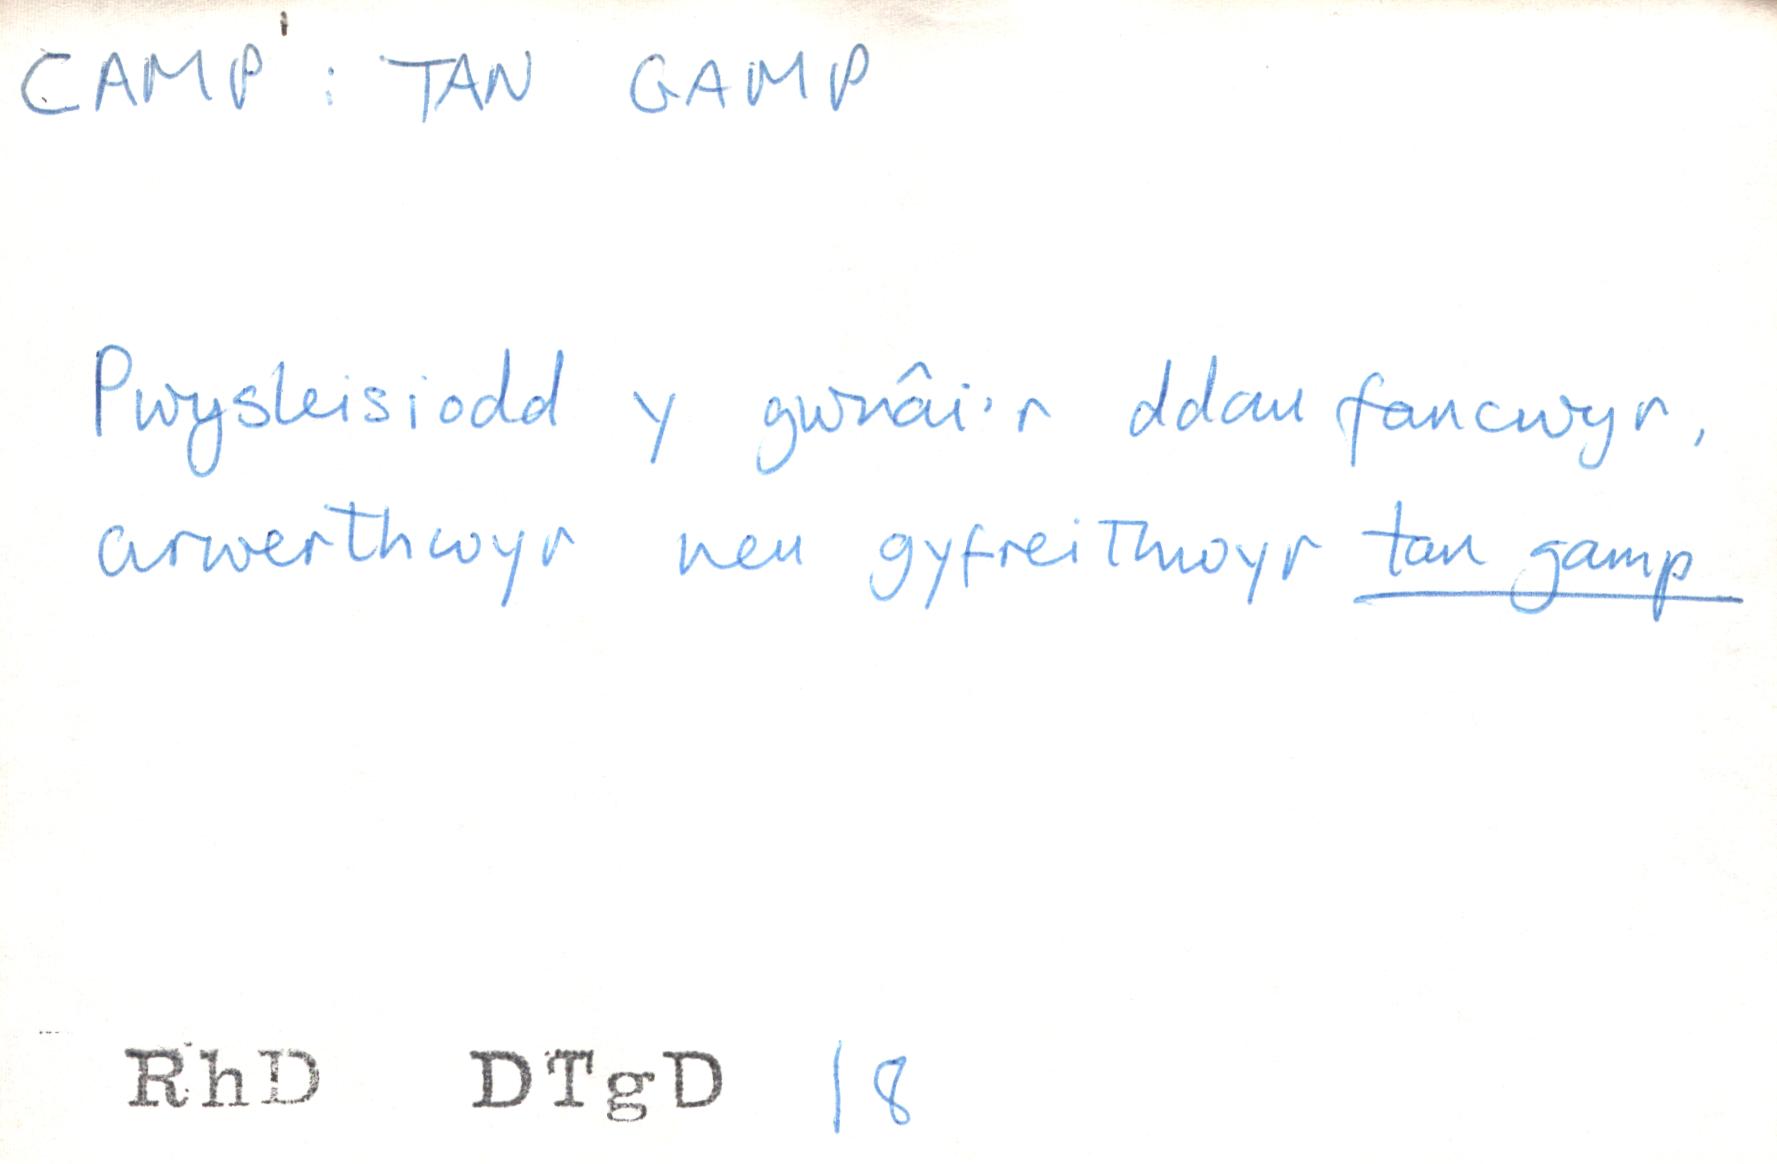 CAMP¹ : TAN GAMP
Pwysleisiodd y gwnâi'r ddau fancwyr,
arwerthwyr neu gyfreithwyr tan gamp
RhD DTgD 18